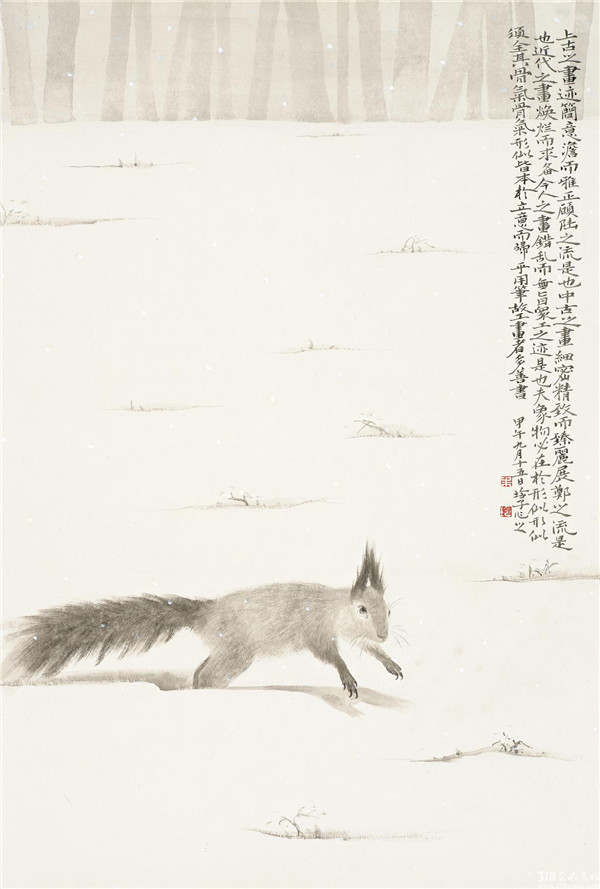 上古之畫迹簡意澹而雅正顧陸之流是也中古之畫細密精致而臻麗展鄭之流是
也近代之畫煥爛而求备今人之畫錯乱而無旨衆工之迹是也夫象物必在於形似形似
須全其骨氣骨氣形似皆本於立意而歸乎用筆故工畫者多善書
甲午九月十五日 子 之